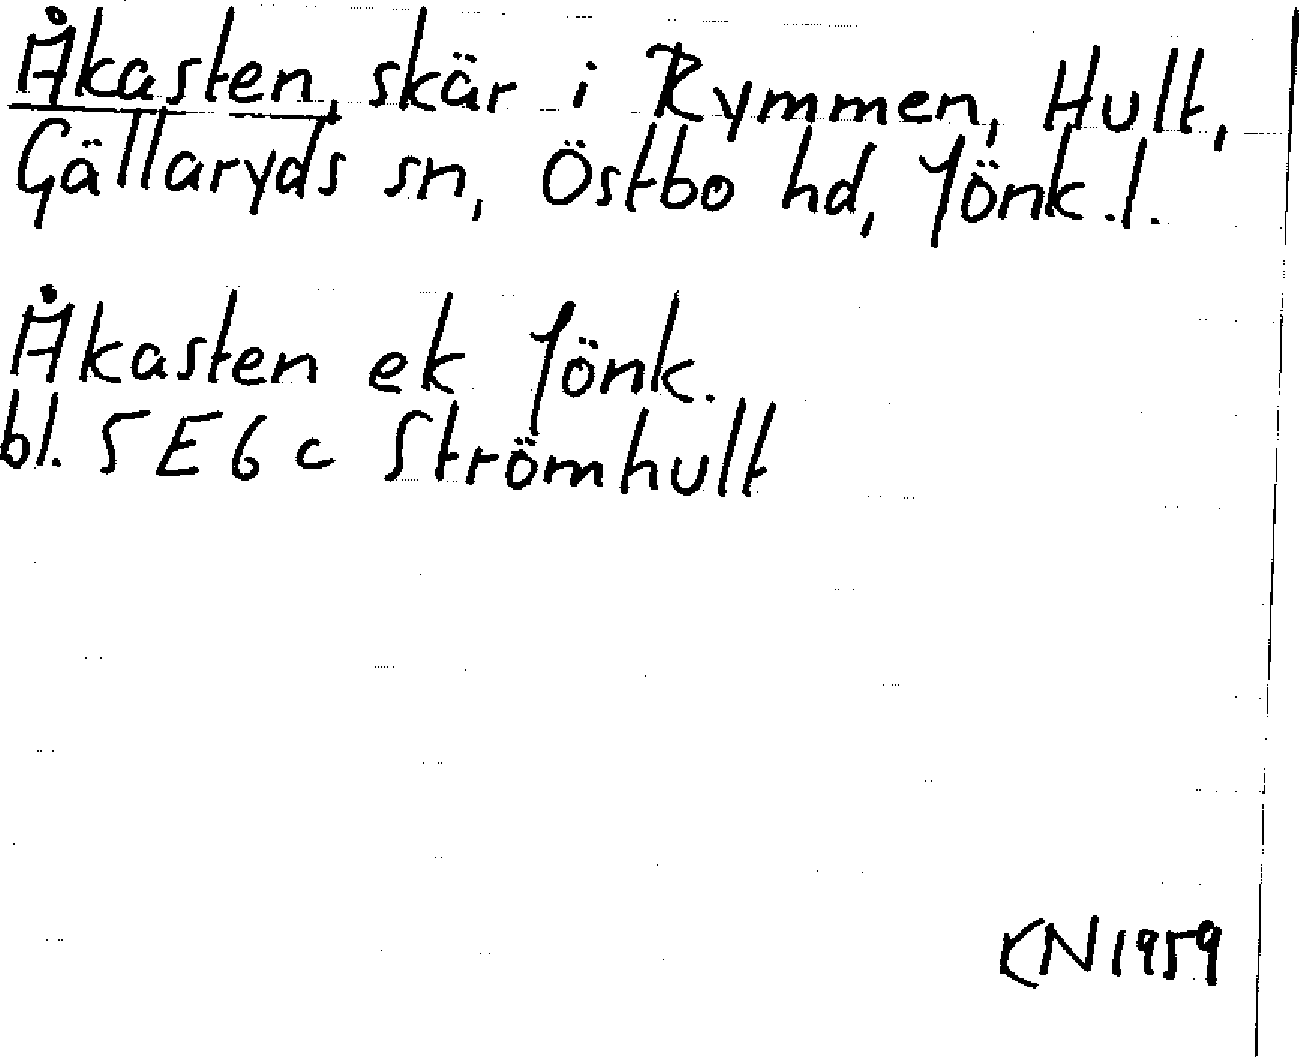 Åkasten, skär i Rymmen, Hult,
Gällaryds sn, Östbo hd, Jönk.l.
Åkasten ek Jönk.
bl. 5E6c Strömhult
KN 1959